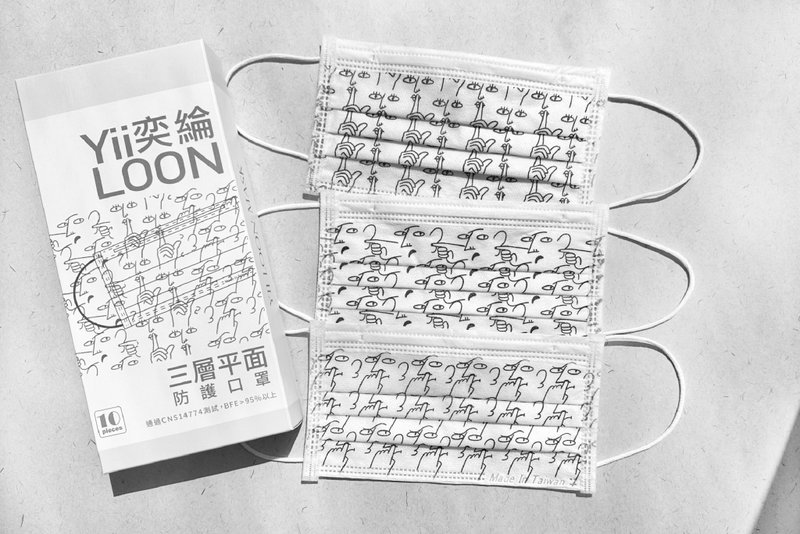 Yii奕綸
LOON
三層平面
防護口罩
通過CNS14774測試，BFE>95%以上
10
pieces
Made In Taiwan